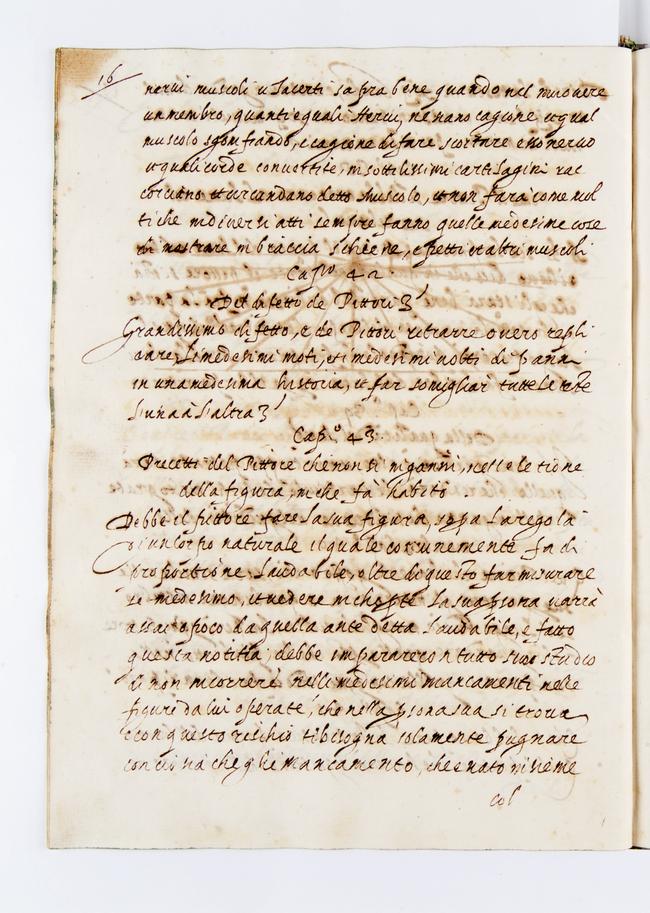 16
nerui muscoli e lacerti sapra bene quando nel muouere
un membro, quanti e quali Nerui, ne siano cagione et qual
muscolo sgomfiando, e cagione di fare scortare esso neruo
et quali corde conuertite, in sottilissimi cartilagini rac
cercano et circundano detto Muscolo, et non fara come mol
ti che in diuersi atti sempre fanno quelle medesime cose
di mostrare in braccia schiene, e petti et altri muscoli
Capo. 42.
Del difetto de Pittori
Grandissimo difetto, e de Pittori ritrarre ouero repli
care, li medesimi moti, et i medesimi uolti di panni
in una medesima historia, et far somigliar tutte le teste
l'una à l'altra
Capo. 43.
Precetti del Pittore che non si inganni, nell e le tione
della figura, in che fà l'habito
Debbe il pittore fare la sua figura, sopra la regola
di un corpo naturale il quale comunemente sia di
proportione, laudabile, oltre di questo far misurare
se medesimo, et uedere in che parte la sua psona uarrà
assai o poco da quella ante detta laudabile, e fatto
questa notitia, debbe imparare con tutto suo studio
di non incorrere nelli medesimi mancamenti nelle
figure da lui operate, che nella psona sua si troua
e con questo uechio ti bisogna solamente pugnare
con cio sia che gli è mancamento, che è nato insieme
col